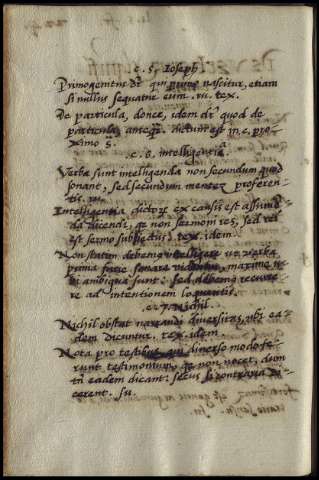 c. 5. Ioseph
Primogenitus dr̃ qui primo nascitur, etiam
si nullus sequatur eum. su. tex.
De particula, donec, idem dr̃ quod de
particula, antequã. dictum est in c. pro-
ximo §.
c. 6. intelligentia
Verba sunt intelligenda non secundum quod
sonant, sed secundum mentem proferen-
tis. su.
Intelligentia dictorũ ex causis est assumẽ
da dicendi, qr̃ non sermoni res, sed rei
est sermo subiectus. tex. idem.
Non statim debemus intelligere ut verba
prima facie sonare videntur, maxime
ubi ambigua sunt: sed debemus recurre
re ad intentionem loquentis.
c. 7. Nichil.
Nichil obstat narrandi diversitas, ubi ea-
dem dicuntur. tex. idem.
Nota pro testibus, qui diverso modo fe-
runt testimonium, qr̃ non nocet, dum
tñ eadem dicant: secus si contraria di-
cerent. su.